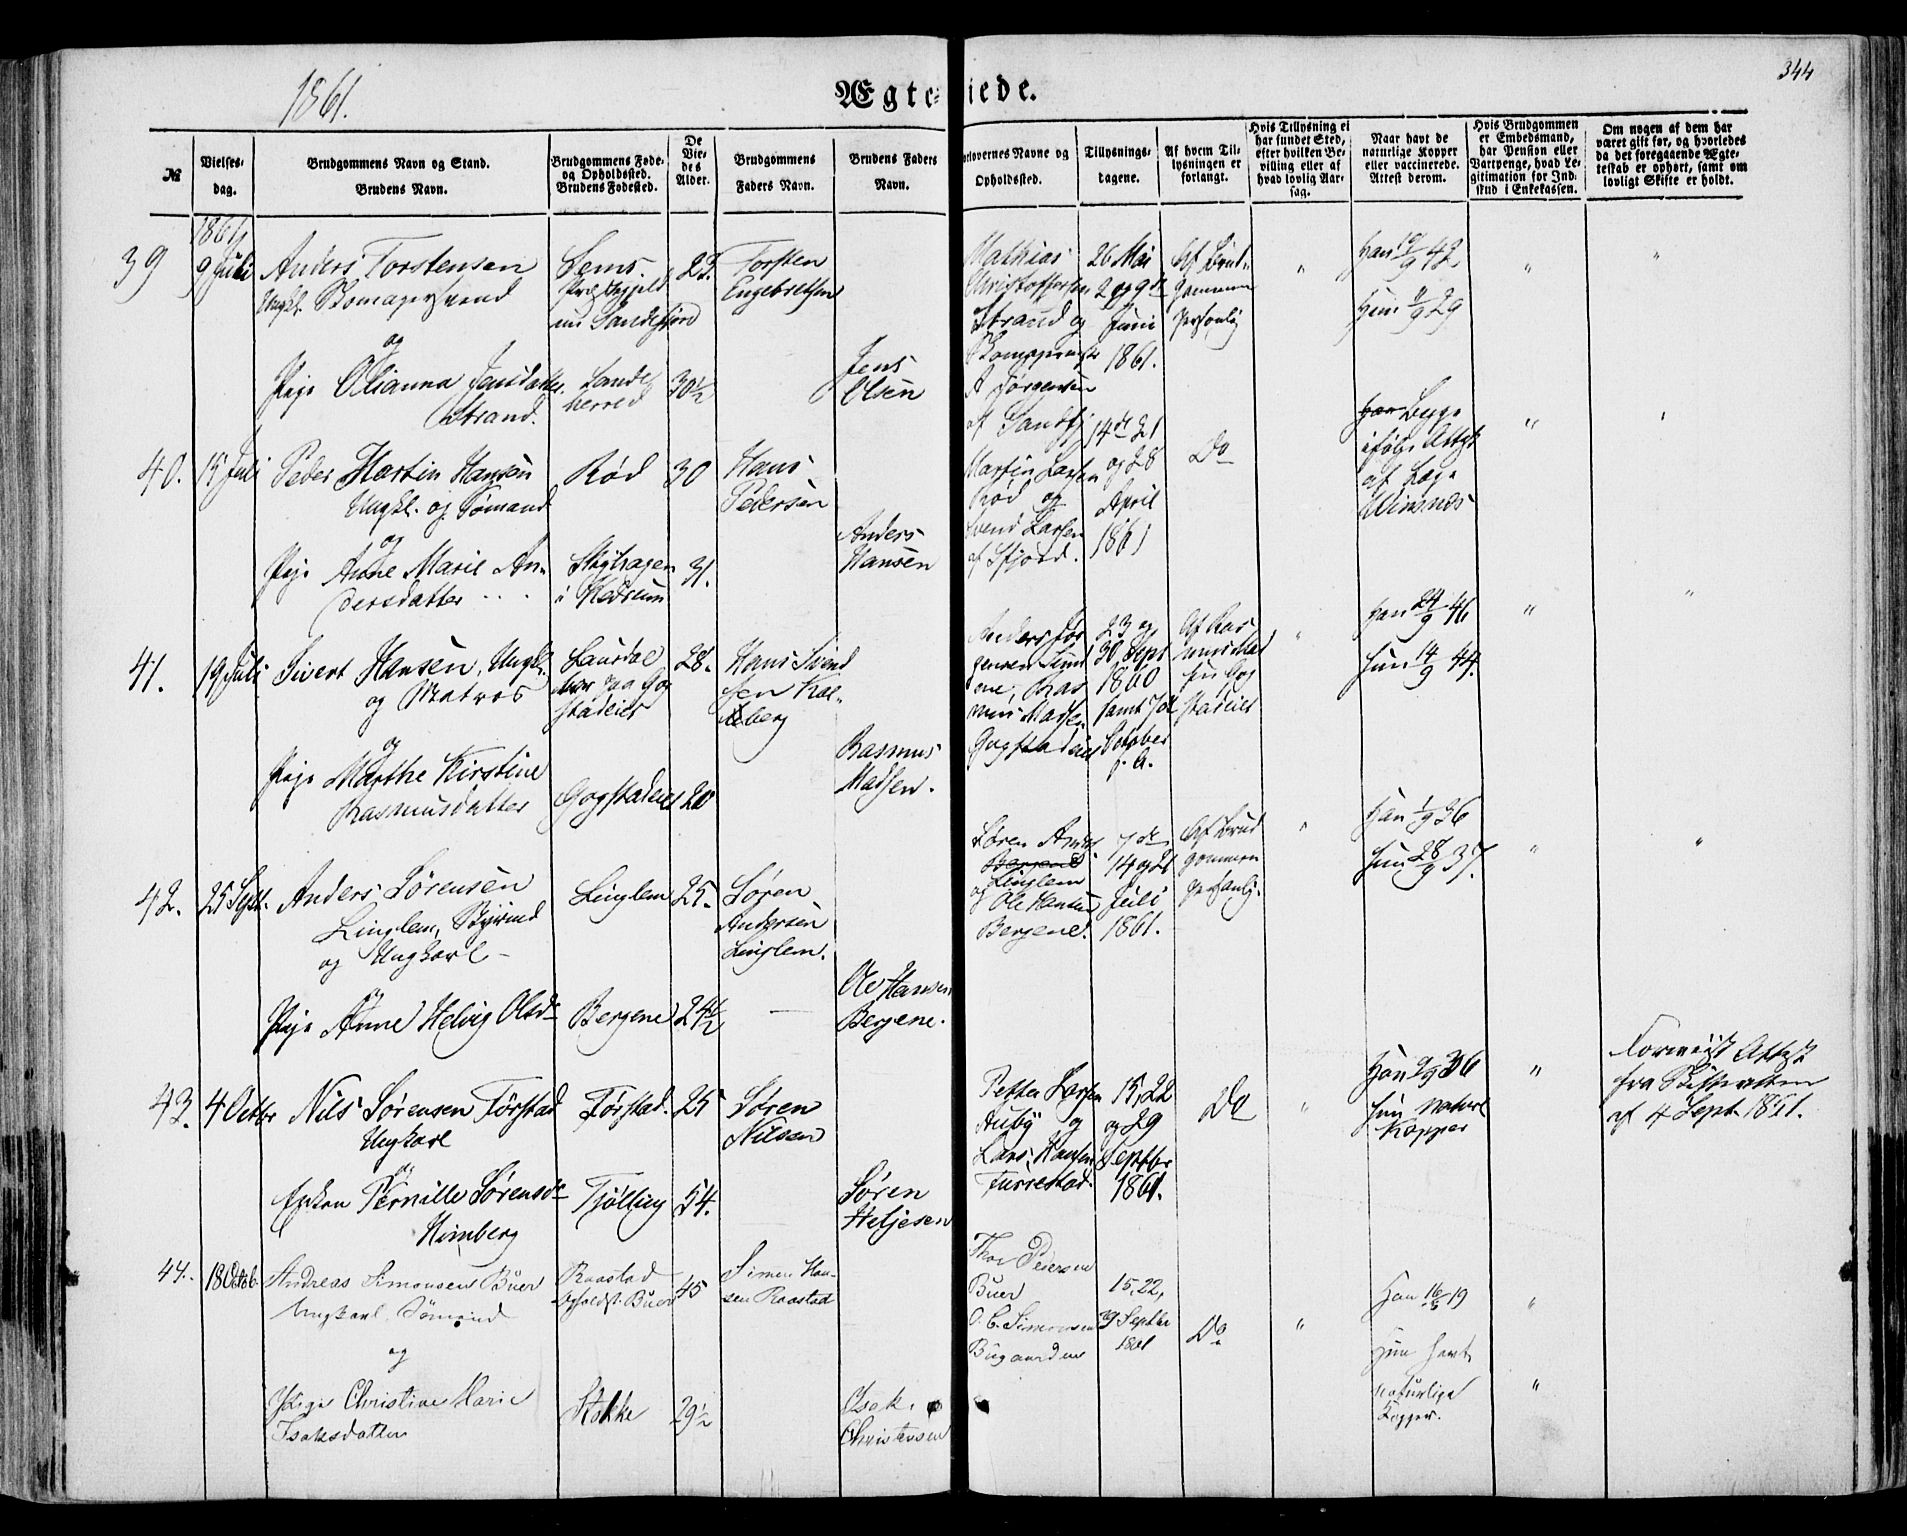 1861.
Ægteviede.
344
№
Vielses-
dag.
Brudgommens Navn og Stand.
Brudens Navn.
Brudgommens Føde-
og Opholdssted.
Brudens Fødested.
De
Vie-
des
Alder.
Brudgommens
Faders Navn.
Brudens Faders
Navn.
orlovernes Navne og
Opholdssted.
Tillysnings-
dagene.
Af hvem Til-
lysningen er
forlangt.
Hvis Tillysning ei
har fundet Sted,
efter hvilken Be-
villing eller af
hvad lovlig Aar-
sag.
Naar havt de
naturlige Kopper
eller vaccinerede.
Attest derom.
Hvis Brudgommen
er Embedsmand,
har Pension eller
Vartpenge, hvad Le-
gitimation for Ind-
skud i Enkekassen.
Om nogen af dem har
været gift før, og hvorledes
da det foregaaende Ægte-
skab er ophørt, samt om
lovligt Skifte er holdt.
1861
39
9 Juli
Anders Torstensen
Ungk. Skomagersvend
og
Pige Olianna Jensdatter
Strand.
Sems
Præstegjeld
nu Sandefjord
Sande
herred
23.
30½
Torsten
Engebretsen
Jens
Olsen
Mathias
Christoffersen
Strand og
A Jørgensen
af Sandfj
26 Mai
2 og 9de
Juni
1861.
Af Brud-
gommen
personlig
"
Han 19/9 42
Hun 11/9 29
"
"
40.
15 Juli
Peder Martin Hansen
Ungk. og Sømand
og
Pige Anne Marie An-
dersdatter
Rød
i Hedrum
30
31.
Hans
Pedersen
Anders
Hansen
Martin Larsen
Rød og
Svend Larsen
af Sfjord.
14de 21
og 28
April
1861
Do
Begge
ifølge Attest
af Læge
Wimnes
"
"
41.
19 Juli
Sivert Hansen, Ungk.
og Matros
og
Pige Marthe Kirstine
Rasmusdatter
Gogstadeie
28.
20
Hans Svend
sen Kal-
leberg
Rasmus
Madsen.
Anders Jør
gensen
mus Madsen
Gogstadeie
23 og
30 Sept
1860
samt 7de
October
f. A.
Af Ras
mus Mad
sen Gog
stadeie
"
Han 24/9 46
Hun 14/9 44.
"
"
42.
25 Sept.
Anders Sørensen
Linglem,
og Ungkarl
og
Pige Anne Helvig Olsd-
Linglem
Bergene
25.
24½
Søren
Andersen
Linglem.
Ole Hansen
Bergene.
Søren Anders
Bergene
Linglem
og Ole Hansen
Bergene.
7de
14 og 21
Juli
1861.
Af Brud
gommen
personlig.
"
Han 1/9 36
Hun 28/9 37.
"
"
43.
4 Octbr
Nils Sørensen Førstad
Ungkarl
og
Enken Pernille Sørensd-
Himberg
Førstad.
Tjølling
25
54.
Søren
Nilsen
Søren
Heljesen
Petter Larsen
Auby og
Lars Hansen
Furrestad.
15, 22
og 29
Septbr
1861.
Do
"
Han 9/9 36
Hun naturl
Kopper
"
Foreviist Attest
fra Skifteretten
af 4 Sept 1861.
44.
18 Octob.
Andreas Simonsen Buer
Ungkarl Sømand
og
Pige Christine Marie
Isaksdatter
Raastad
Opholdst. Buer
Stokke
45
29½
Simen Han-
sen Raastad
Isak
Christensen
Thor Pedersen
Buer
O. C. Simonsen
Bugaarden
15, 22,
29 Septbr
1861
Do
"
Han 16/8 19
Hun havt
naturlige
Kopper.
"
"